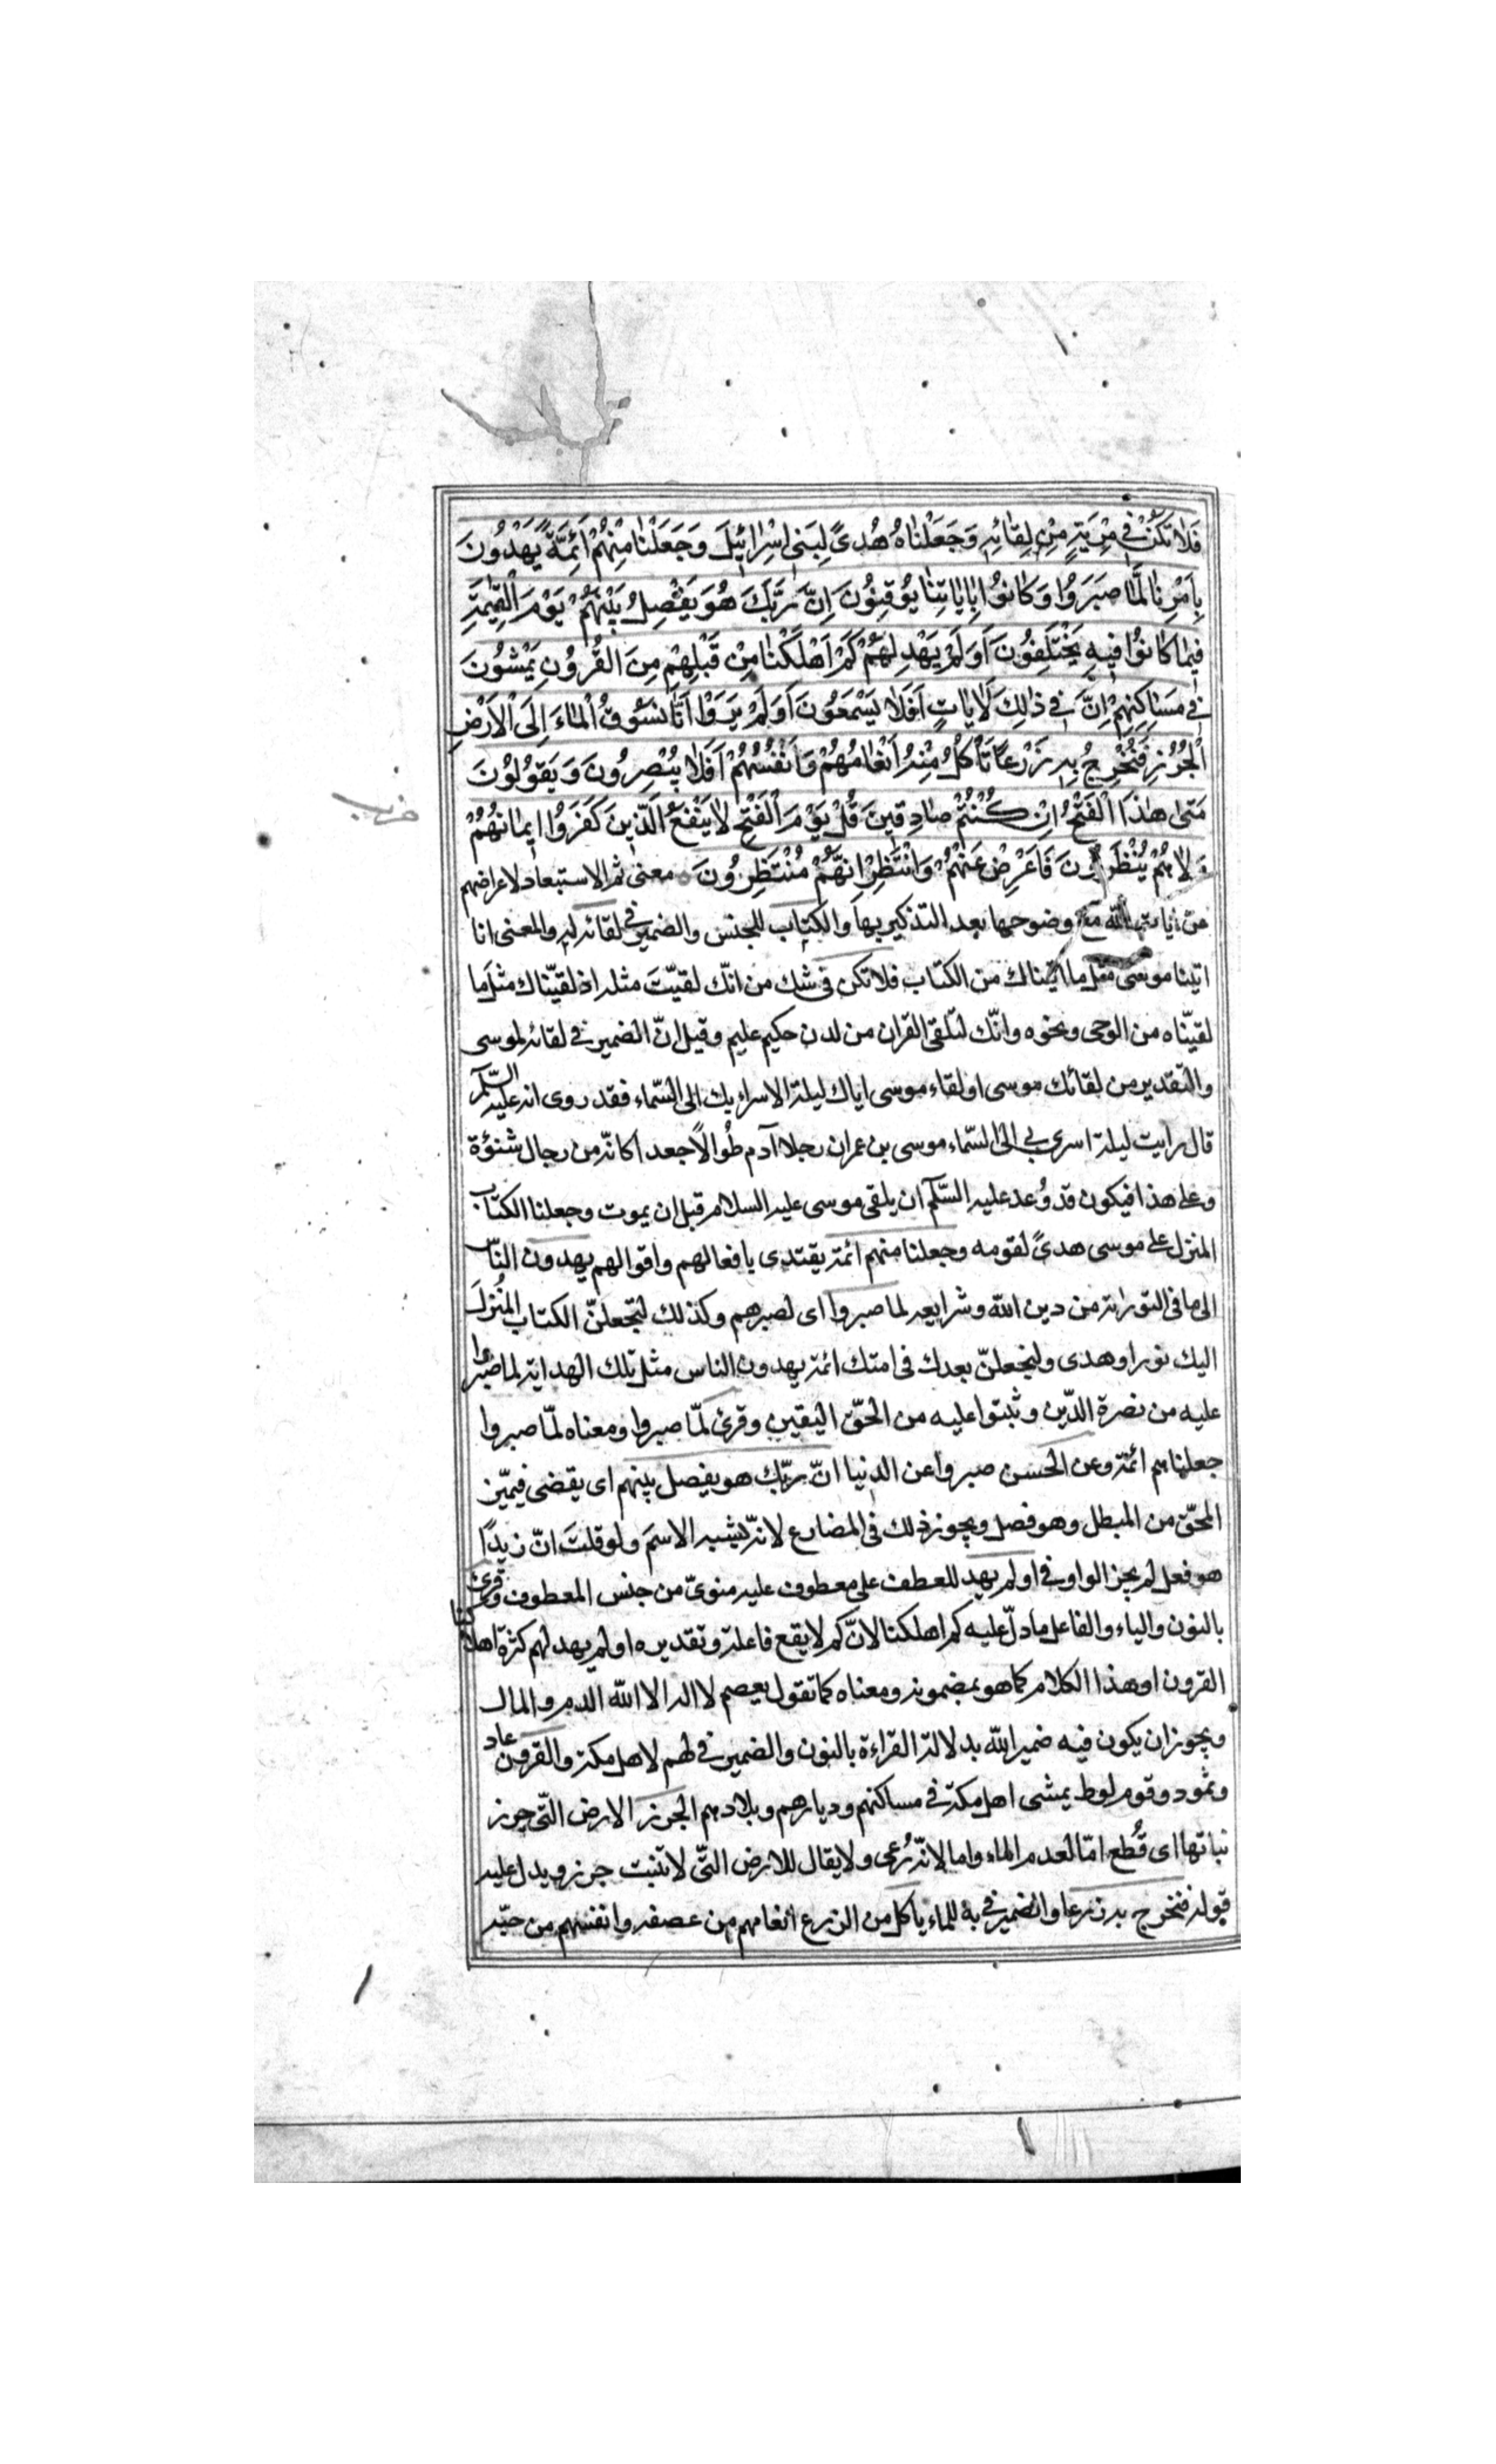 فَلا تَكُنْ فِي مِرْيَةٍ مِنْ لِقائِهِ وَجَعَلْناهُ هُدىً لِبَنِي اِسْرائِيلَ وَجَعَلْنا مِنْهُمْ اَئِمَّةً يَهْدُونَ
بِاَمْرِنا لَمّا صَبَرُوا وَكانُوا بِاياتِنا يُوقِنُونَ اِنَّ رَبَّكَ هُوَ يَفْصِلُ بَيْنَهُمْ يَوْمَ الْقِيمَةِ
فِيما كانُوا فِيهِ يَخْتَلِفُونَ اَوَلَمْ يَهْدِ لَهُمْ كَمْ اَهْلَكْنا مِنْ قَبْلِهِمْ مِنَ القُرُونِ يَمْشُونَ
فِي مَساكِنِهِمْ اِنَّ فِي ذلِكَ لَاياتٍ اَفَلا يَسْمَعُونَ اَوَلَمْ يَرَوْا اَنّا نَسُوقُ الْماءَ اِلَى الْاَرْضِ
الْجُرُزِ فَنُخْرِجُ بِهِ زَرْعًا تَأْكُلُ مِنْهُ اَنْعامُهُمْ وَاَنْفُسُهُمْ اَفَلا يُبْصِرُونَ وَيَقُولُونَ
مَتى هذَا الْفَتْحُ اِنْ كُنْتُمْ صادِقِينَ قُلْ يَوْمَ الْفَتْحِ لا يَنْفَعُ الَّذِينَ كَفَرُوا اِيمانُهُمْ
وَلا هُمْ يُنْظَرُونَ فَاَعْرِضْ عَنْهُمْ وَانْتَظِرْ اِنَّهُمْ مُنْتَظِرُونَ معنى ثم الاستبعاد لاعراضهم
عن ايات الله مع وضوحها بعد التذكير بها والكتاب للجنس والضمير في لقائه له والمعنى انا
اتينا موسى مثل ما اتيناك من الكتاب فلا تكن فى شك من انّك لقيّت مثله اذ لقيّناك مثل ما
لقيّناه من الوحى ونحوه وانّك لتلقى القران من لدن حكيم عليم وقيل انّ الضمير في لقائه لموسى
والتقدير من لقائك موسى او لقاء موسى اياك ليلة الاسراء بك الى السّماء فقد روى انه عليه السّلم
قال رايت ليلة اسرى بي الى السّماء موسى بن عمران رجلا آدم طُوالًا جعدا كانّه من رجال شنؤة
وعلى هذا فيكون قد وُعد عليه السّلم ان يلقى موسى عليه السلام قبل ان يموت وجعلنا الكتاب
المنزل على موسى هدىً لقومه وجعلنا منهم ائمة يقتدى بافعالهم واقوالهم يهدون النّاس
الى ما فى التوراة من دين الله وشرايعه لما صبروا اى لصبرهم وكذلك لنجعلنّ الكتاب المُنزل
اليك نورا وهدى ولنجعلنّ بعدك فى امتك ائمة يهدون الناس مثل تلك الهداية لما صبروا
عليه من نصرة الدّين وثبتوا عليه من الحقّ اليقين وقرئ لمّا صبروا ومعناه لمّا صبروا
جعلناهم ائمّة وعن الحسن صبروا عن الدنيا انّ ربّك هو يفصل بينهم اى يقضى فيميّز
المحقّ من المبطل وهو فصل ويجوز ذلك فى المضارع لانّه يشبه الاسم ولو قلت انّ زيدًا
هو فعل لم يجز الواو في اولم يهد للعطف على معطوف عليه منوىّ من جنس المعطوف وقرئ
بالنون والياء والفاعل ما دلّ عليه كم اهلكنا لانّ كم لا يقع فاعلة وتقديره اولم يهد لهم كثرة اهلاكنا
القرون او هذا الكلام كما هو بمضمونه ومعناه كما تقول يعصم لا اله الا الله الدم والمال
ويجوز ان يكون فيه ضمير الله بدلالة القراءة بالنون والضمير في لهم لاهل مكة والقرون عاد
وثمود وقوم لوط يمشى اهل مكة في مساكنهم وديارهم وبلادهم الجرز الارض الّتى جرز
نباتها اى قُطع امّا لعدم الماء واما لانّه رُعى ولا يقال للارض التّى لا تنبت جرز ويدل عليه
قوله فنخرج به زرعا والضمير في به للماء ياكل من الزرع انعامهم من عصفه وانفسهم من حبّه